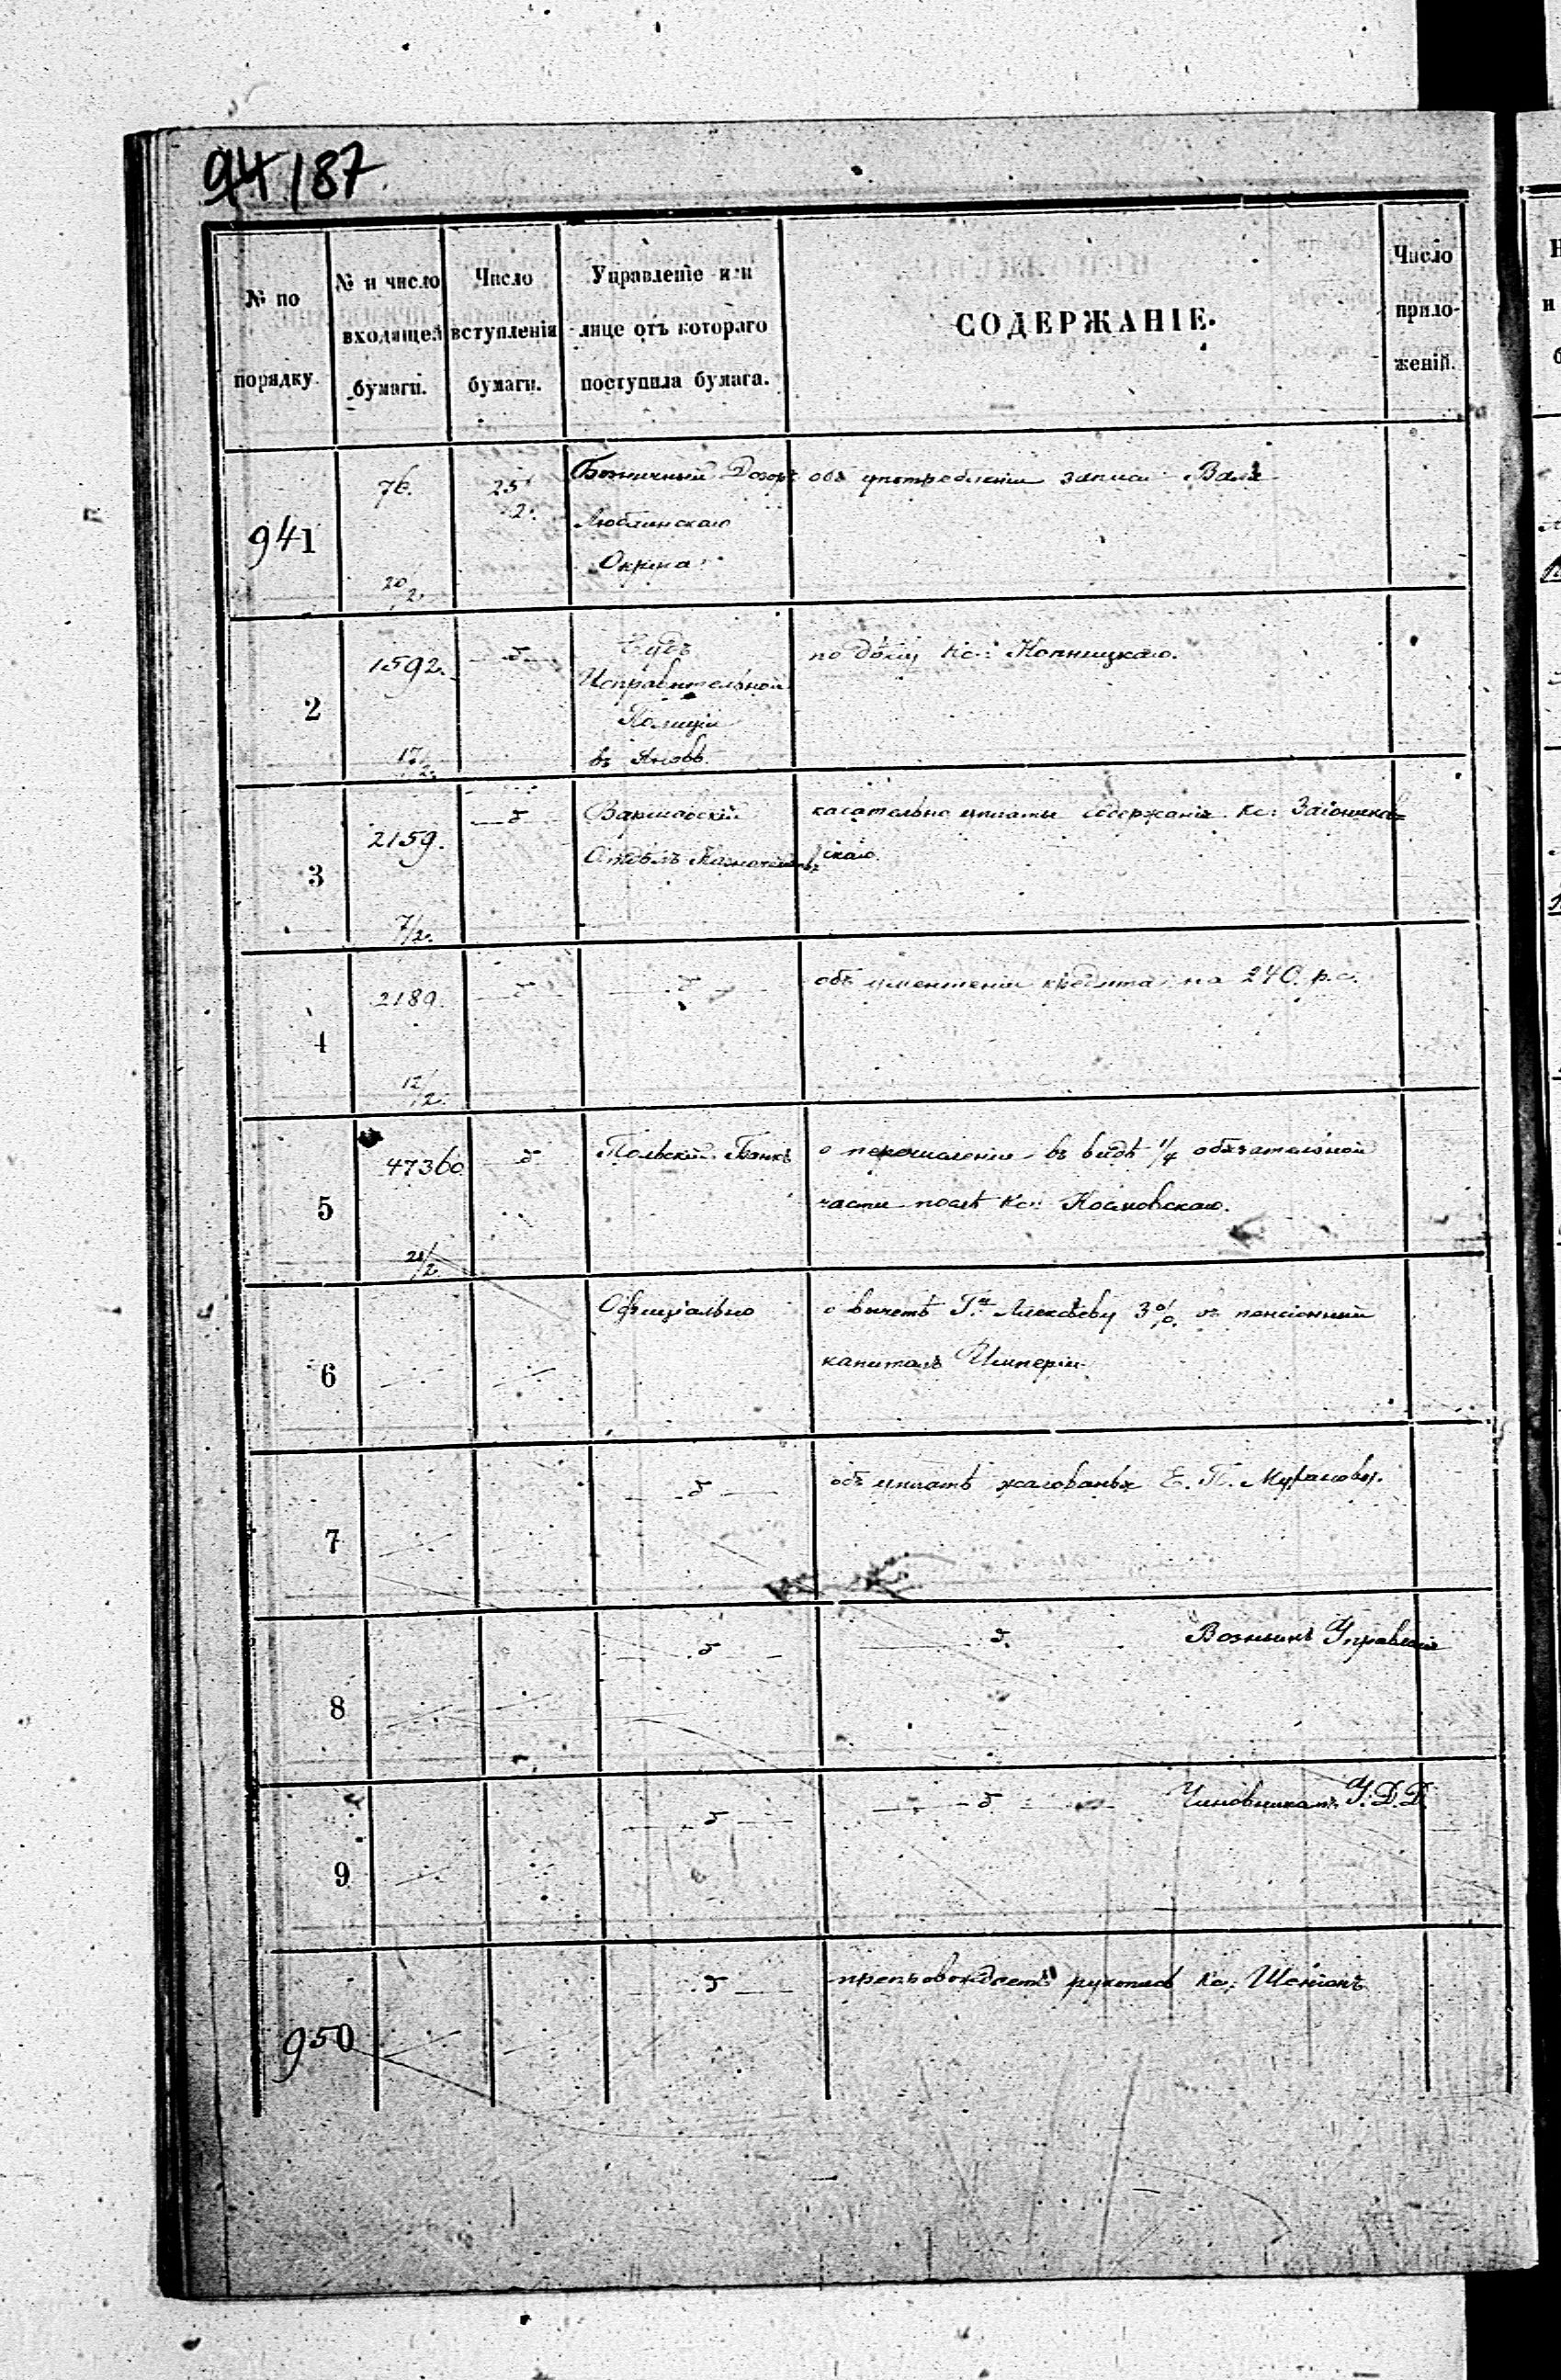 94/87
№ по порядку.
№ и число входящей бумаги.
Число вступленія бумаги.
Управленіе или лице отъ котораго поступила бумага.
СОДЕРЖАНІЕ.
Число приложеній.
941
76.
20/2.
25/2.
Божничный Дозоръ
Люблинскаго
Округа
объ употребленіи записи
2
1592.
17/2.
Судъ
Исправительной
Полиціи
въ Яновѣ
по дѣлу Кс: Копницкаго.
3
2159.
7/2.
Варшавскій
Отдѣлъ
касательно уплаты содержанія Кс:
скаго.
4
2189.
12/2.
объ уменшеніи кредита на 240. р.с.
5
47360
21/2.
Польскій Банкъ
о перечисленіи въ видѣ 1/4 обязательной
части послѣ Кс: Косиовскаго.
6
Офиціально
о вычетѣ Алексѣеву 3% въ пенсіонный
капиталъ Имперіи
7
объ уплатѣ жалованья Е. П.
8
Управленія
9
Чиновникамъ У.Д.Д.
950
препровождаетъ рукопись Кс: